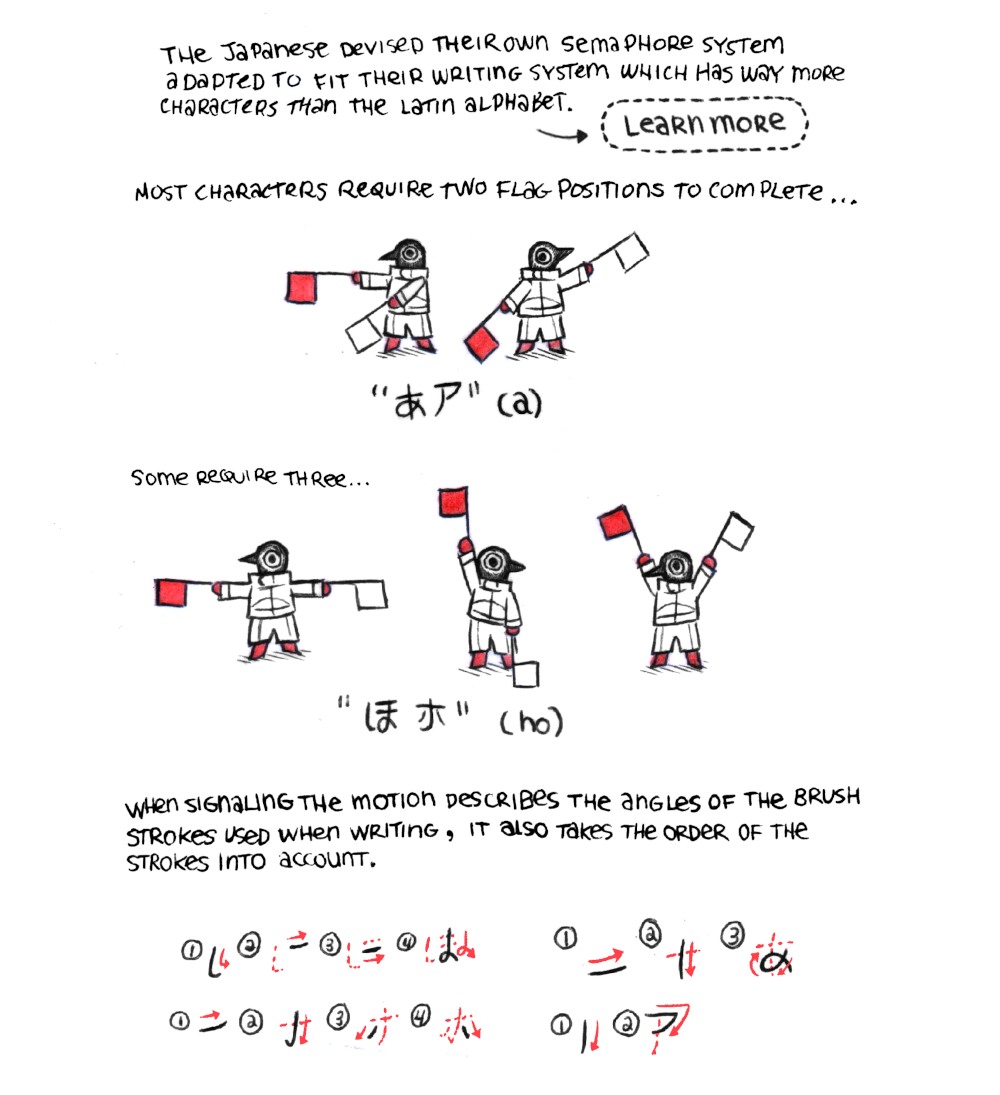 THE JAPANESE DEVISED THEIR OWN SEMAPHORE SYSTEM
ADAPTED TO FIT THEIR WRITING SYSTEM WHICH HAS WAY MORE
CHARACTERS THAN THE LATIN ALPHABET.
LEARN MORE
MOST CHARACTERS REQUIRE TWO FLAG POSITIONS TO COMPLETE...
"あア" (a)
SOME REQUIRE THREE...
"ほホ" (ho)
WHEN SIGNALING THE MOTION DESCRIBES THE ANGLES OF THE BRUSH
STROKES USED WHEN WRITING, IT ALSO TAKES THE ORDER OF THE
STROKES INTO ACCOUNT.
① ② ③ ④ ① ② ③
① ② ③ ④ ① ②